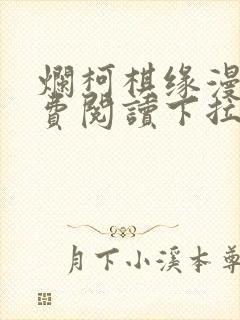 爛柯棋缘漫
費閱讀下拉
月下小溪本尊